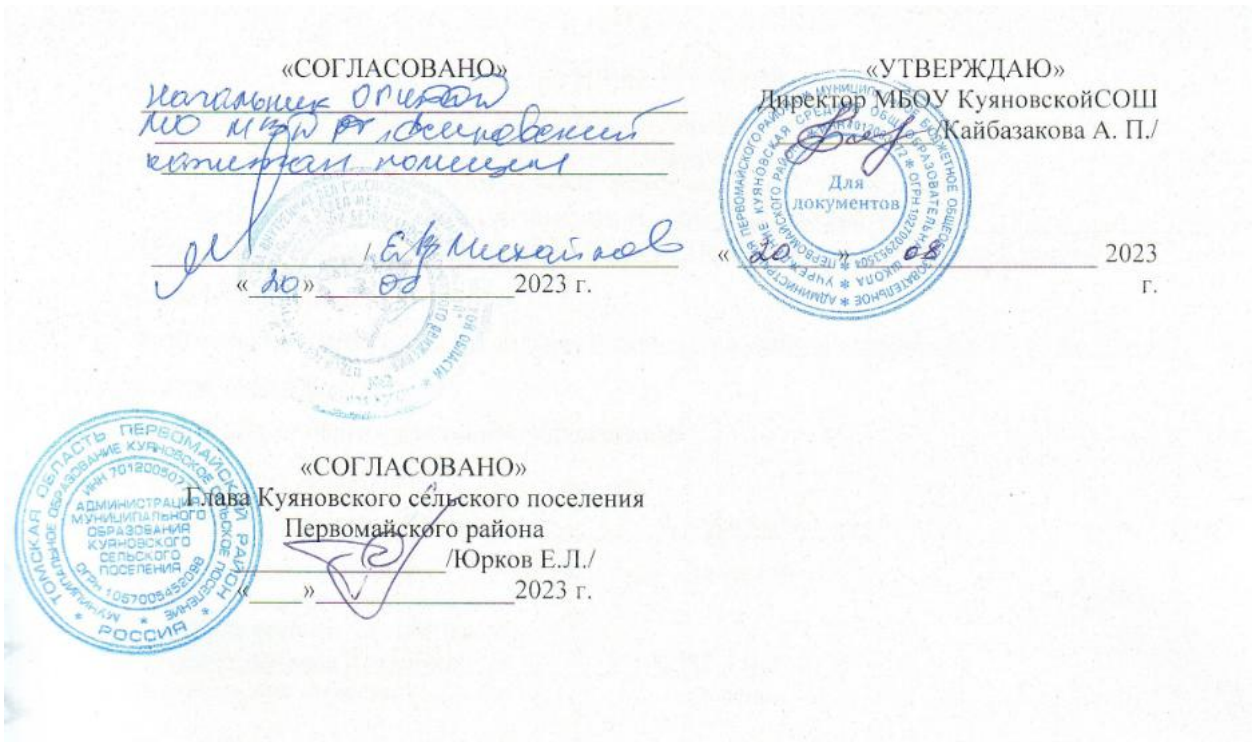 «СОГЛАСОВАНО»
Начальник ОГИБДД
МО МВД РФ Асиновский
капитан полиции
/ Е.В Михайлов
« 20 » 08 2023 г.
«УТВЕРЖДАЮ»
Директор МБОУ КуяновскойСОШ
/Кайбазакова А. П./
« 20 » 08 2023
г.
Для
документов
«СОГЛАСОВАНО»
Глава Куяновского сельского поселения
Первомайского района
/Юрков Е.Л./
« » 2023 г.
ТОМСКАЯ ОБЛАСТЬ ПЕРВОМАЙСКИЙ РАЙОН
РОССИЯ
МУНИЦИПАЛЬНОЕ ОБРАЗОВАНИЕ КУЯНОВСКОЕ СЕЛЬСКОЕ ПОСЕЛЕНИЕ
ОГРН 1057005452098
АДМИНИСТРАЦИЯ
МУНИЦИПАЛЬНОГО
ОБРАЗОВАНИЯ
КУЯНОВСКОГО
СЕЛЬСКОГО
ПОСЕЛЕНИЯ